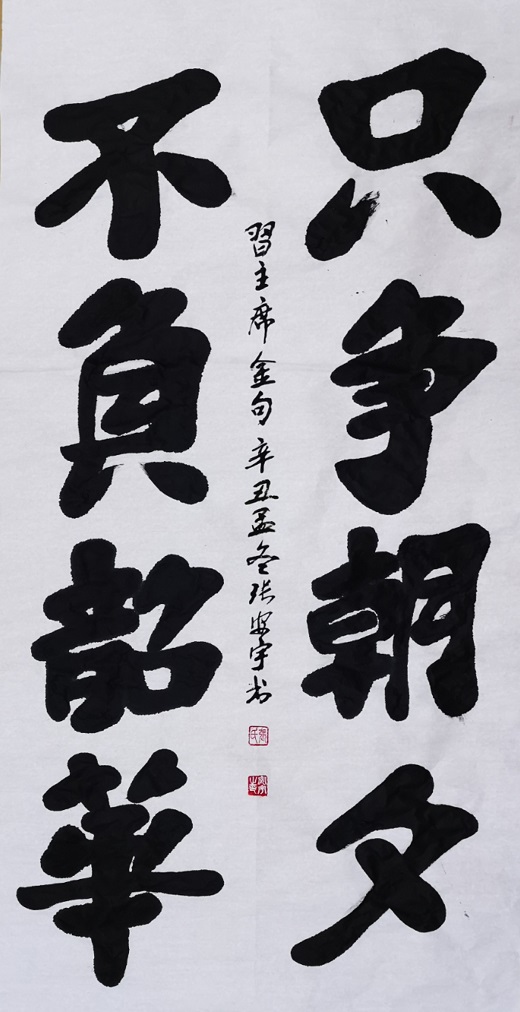 只争朝夕
不負韶華
習主席金句辛丑孟冬张安宇书